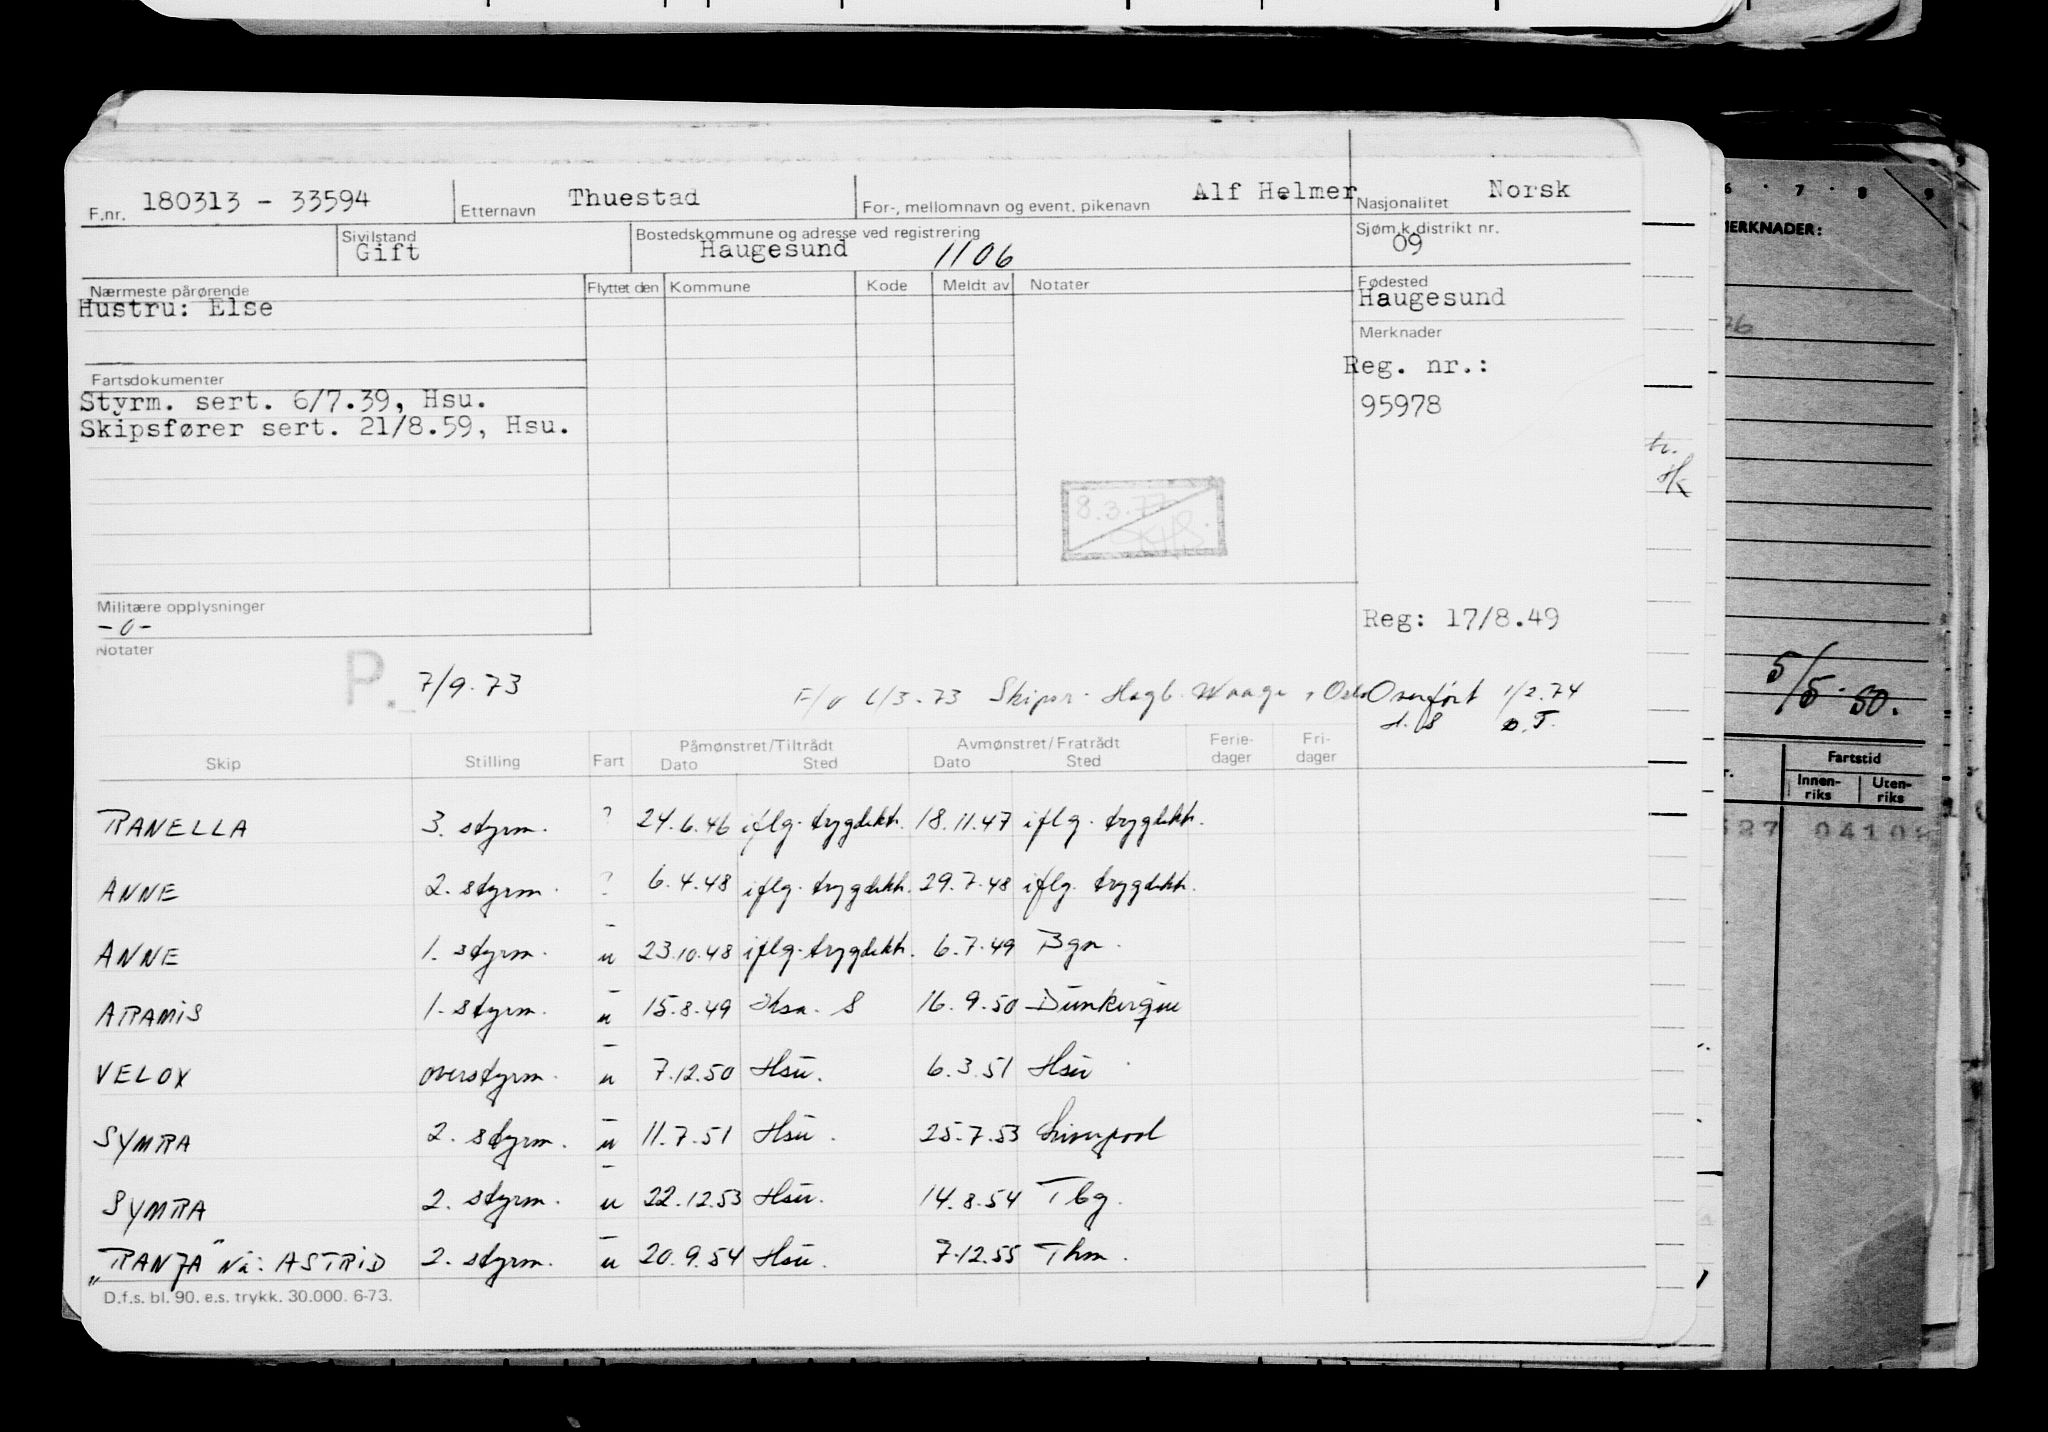 F.nr. 180313 - 33594 Etternavn Thuestad For-, mellomnavn og event. pikenavn Alf Helmer Nasjonalitet Norsk
Sivilstand Gift Bostedskommune og adresse ved registrering Haugesund 1106 Sjøm.k.distrikt nr. 09
Nærmeste pårørende Flyttet den Kommune Kode Meldt av Notater Fødested
Hustru: Else Haugesund
Merknader
Reg. nr.:
95978
Fartsdokumenter
Styrm. sert. 6/7.39, Hsu.
Skipsfører sert. 21/8.59, Hsu.
8.3.77
Militære opplysninger
-0-
Reg: 17/8.49
Notater
P. 7/9.73 F/v 6/3.73 Skipsr. Hagb. Waage, Oslo Overført 1/2.74
Skip Stilling Fart Påmønstret/Tiltrådt Dato Sted Avmønstret/Fratrådt Dato Sted Ferie-dager Fri-dager
RANELLA 3. styrm. ? 24.6.46 iflg. trygdekt. 18.11.47 iflg. trygdekt.
ANNE 2. styrm. ? 6.4.48 iflg. trygdekt. 29.7.48 iflg. trygdekt.
ANNE 1. styrm. u 23.10.48 iflg. trygdekt. 6.7.49 Bgn.
ARAMIS 1. styrm. u 15.8.49 16.9.50 Dunkerque
VELOX overstyrm. u 7.12.50 Hsu. 6.3.51 Hsu
SYMRA 2. styrm. u 11.7.51 Hsu. 25.7.53 Liverpool
SYMRA 2. styrm. u 22.12.53 Hsu. 14.8.54 Tbg.
"RANJA" Nå: ASTRID 2. styrm. u 20.9.54 Hsu. 7.12.55 Thm.
D.f.s. bl. 90. e.s. trykk. 30.000. 6-73.
6 . 7 . 8 9
MERKNADER:
5/5.50.
Fartstid
Innen-riks Uten-riks
527 0410